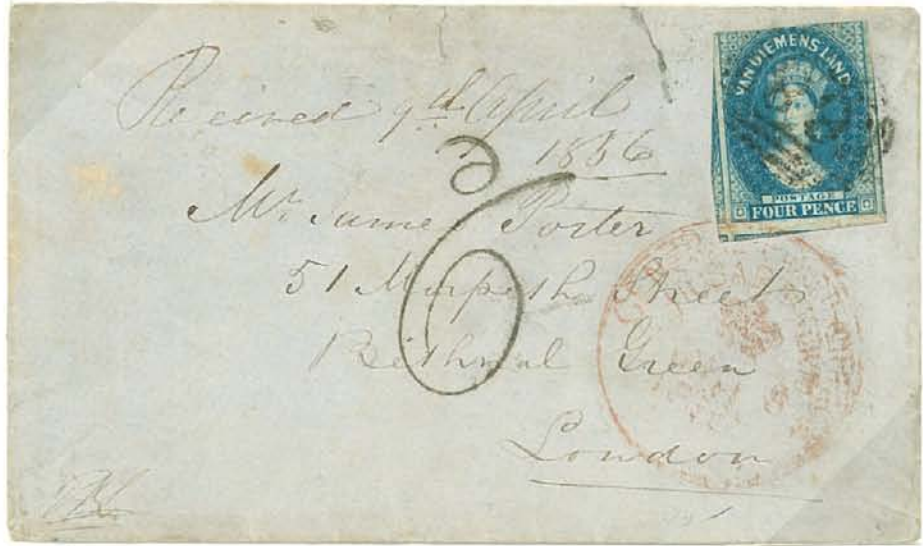 VAN DIEMENS LAND
POSTAGE
FOUR PENCE
Received 9th April
1856
6
Mr. James Porter
51 Morpeth Street
Bethnal Green
London